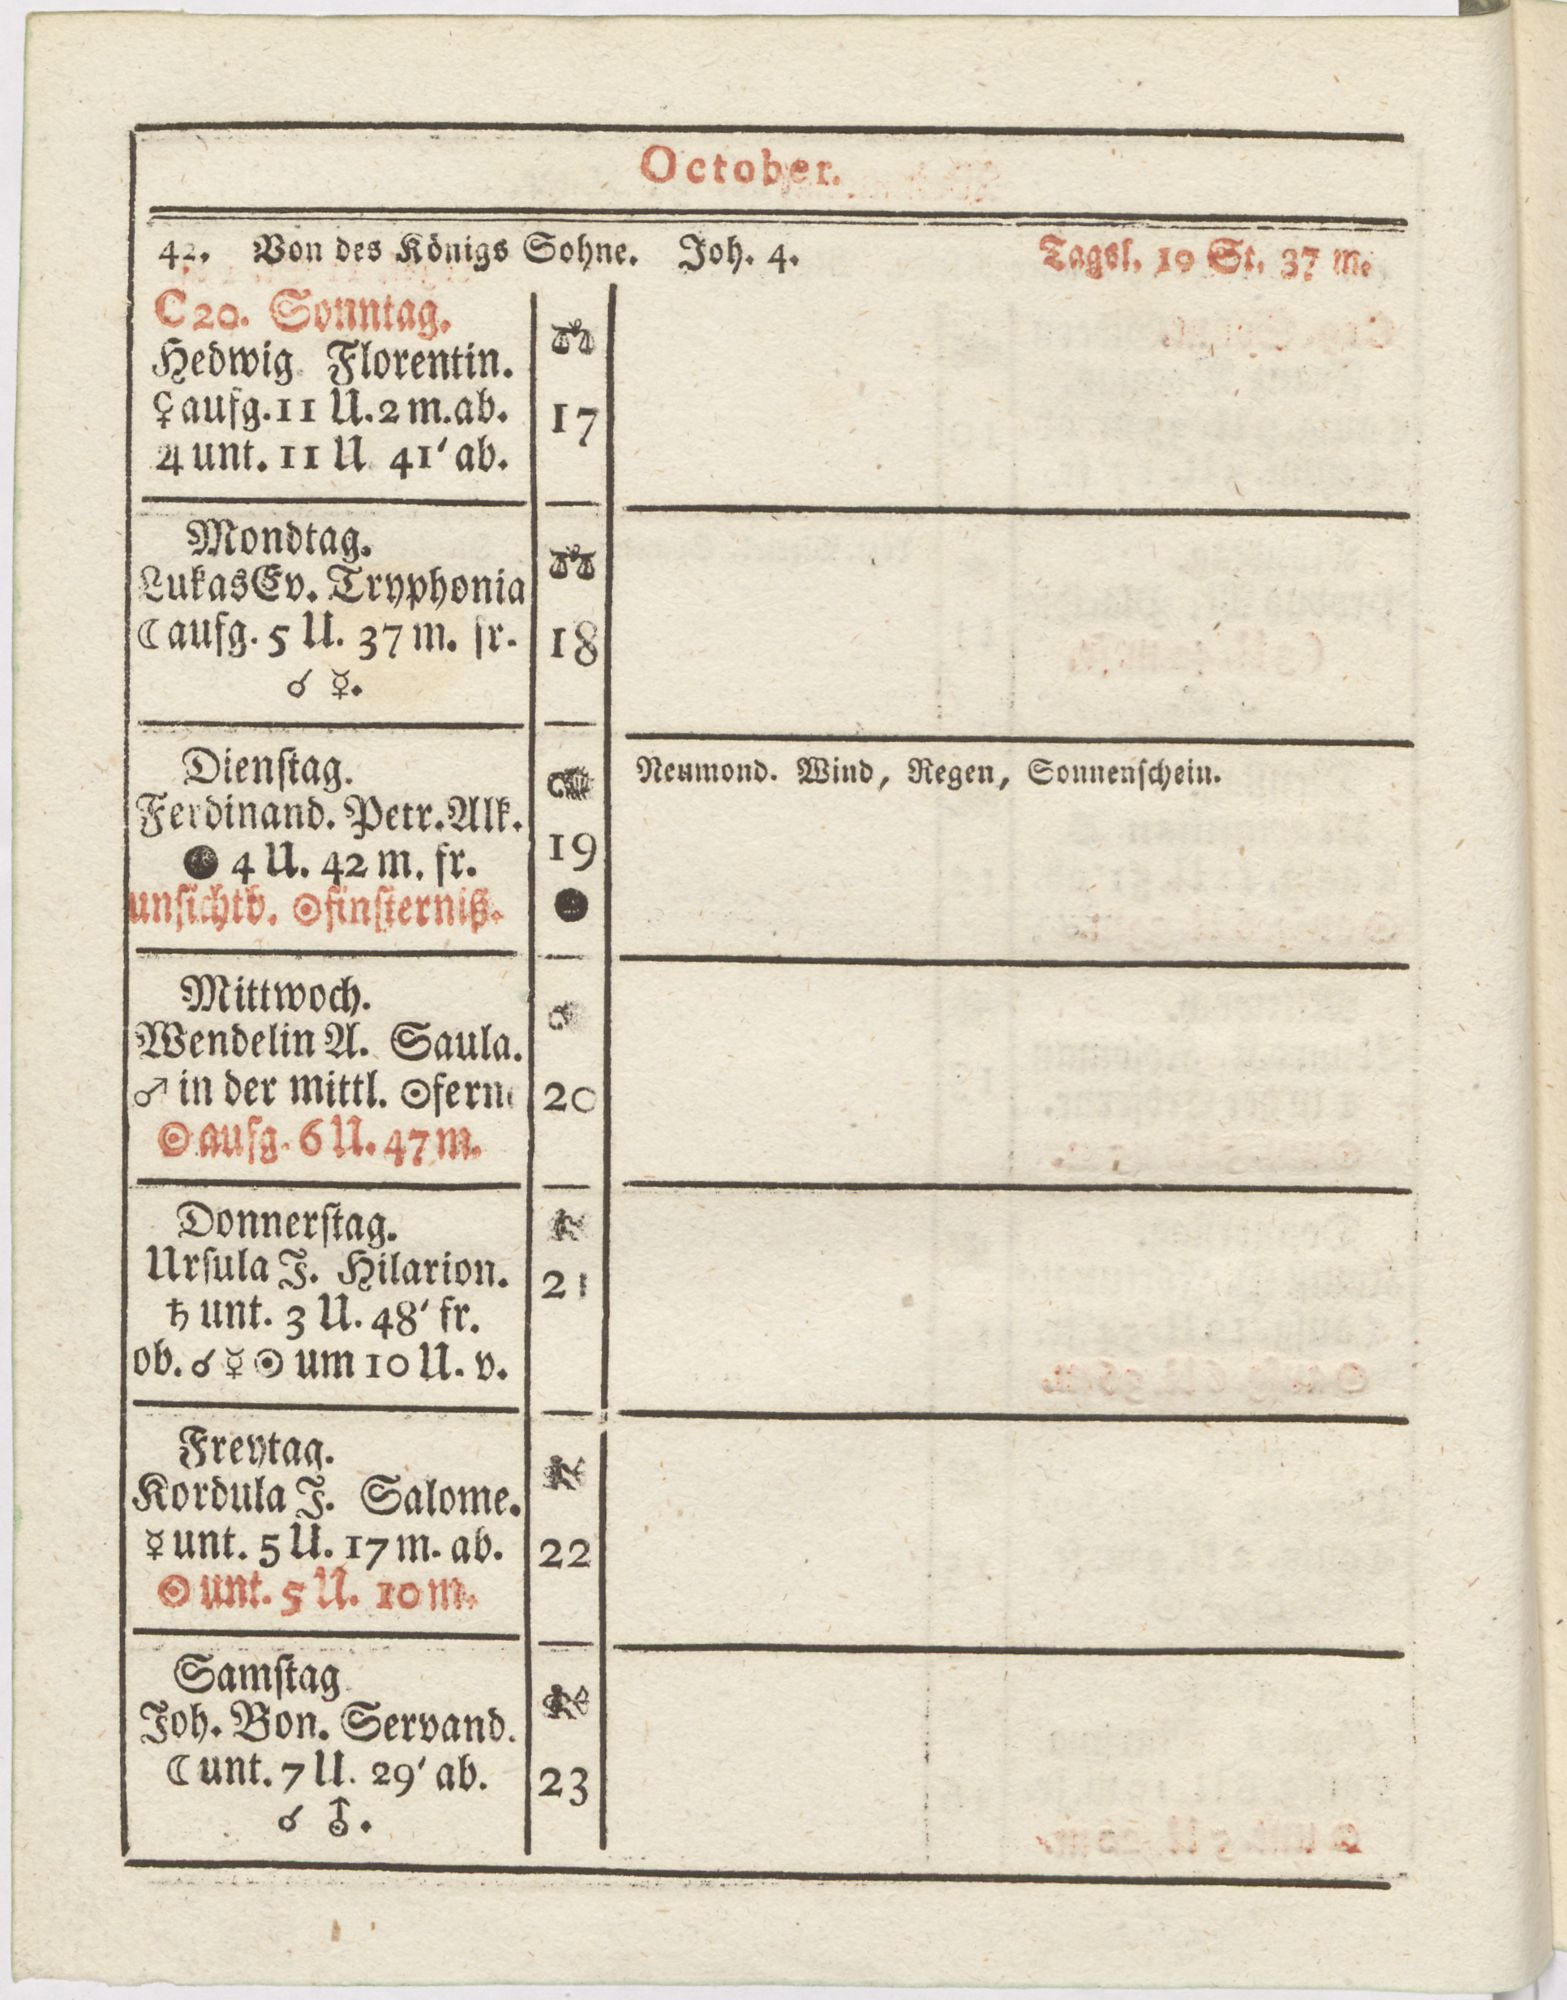 October.
42. Von des Königs Sohne. Joh. 4. Tagsl. 10 St. 37 m.
C 20. Sonntag.
Hedwig Florentin.
♀ aufg. 11 U. 2 m. ab.
17
♃ unt. 11 U 41' ab.
Mondtag.
Lukas Ev. Tryphonia
☾ aufg. 5 U. 37 m. fr.
18
☌ ☿.
Dienſtag.
Neumond. Wind, Regen, Sonnenſchein.
Ferdinand. Petr. Alk.
19
● 4 U. 42 m. fr.
unſichtb. ☉finſterniß.
●
Mittwoch.
Wendelin A. Saula.
♂ in der mittl. ☉fern
20
☉ aufg. 6 U. 47 m.
Donnerſtag.
Urſula J. Hilarion.
21
♄ unt. 3 U. 48' fr.
ob. ☌ ☿ ☉ um 10 U. v.
Freytag.
Kordula J. Salome.
☿ unt. 5 U. 17 m. ab.
22
☉ unt. 5 U. 10 m.
Samſtag
Joh. Bon. Servand.
☾ unt. 7 U. 29' ab.
23
☌ ⛢.